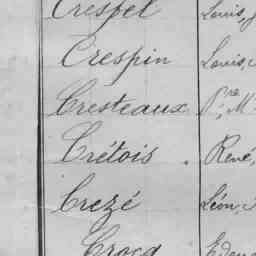 Crespel Louis, J
Crespin Louis,
Cresteaux Pre, M
Crétois . René,
Crezé Léon,
Crocq Edou